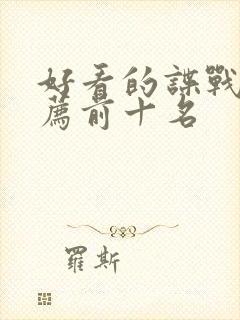 好看的諜戰
薦前十名
羅斯